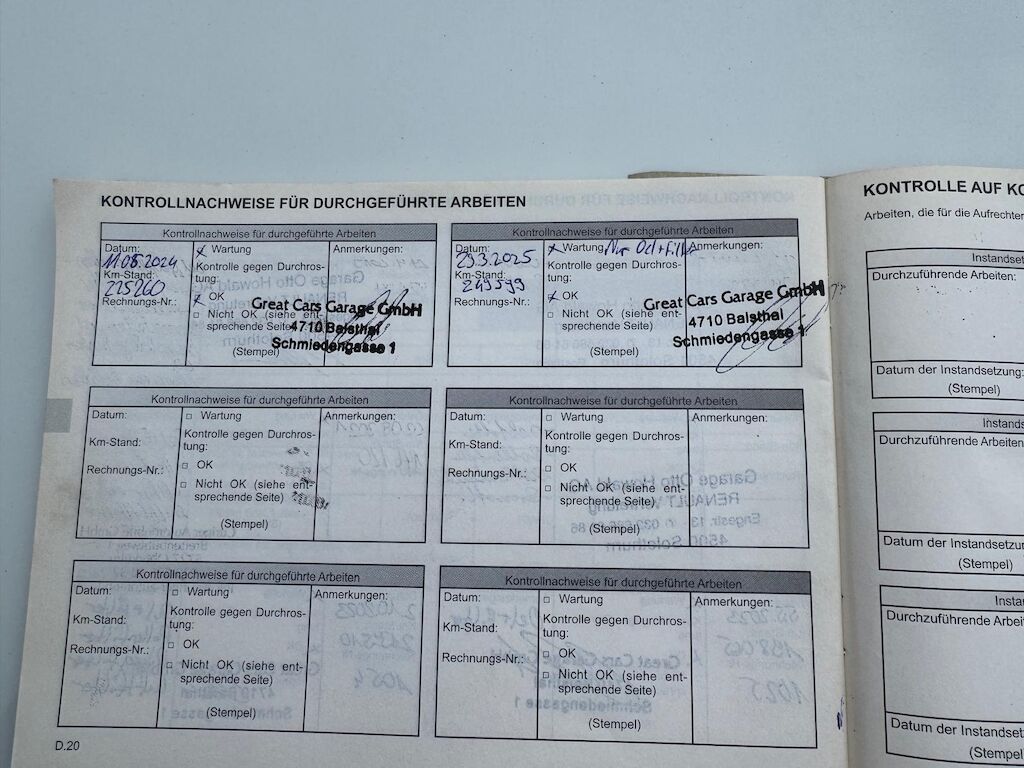 KONTROLLNACHWEISE FÜR DURCHGEFÜHRTE ARBEITEN
Kontrollnachweise für durchgeführte Arbeiten
Datum:
11.08.2024
Km-Stand:
225260
Rechnungs-Nr.:
Wartung
Kontrolle gegen Durchros-
tung:
OK
Nicht OK (siehe ent-
sprechende Seite)
(Stempel)
Anmerkungen:
Great Cars Garage GmbH
4710 Balsthal
Schmiedengasse 1
Kontrollnachweise für durchgeführte Arbeiten
Datum:
29.3.2025
Km-Stand:
Rechnungs-Nr.:
Wartung Nur Oel+Filter
Kontrolle gegen Durchros-
tung:
OK
Nicht OK (siehe ent-
sprechende Seite)
(Stempel)
Anmerkungen:
Great Cars Garage GmbH
4710 Balsthal
Schmiedengasse 1
Kontrollnachweise für durchgeführte Arbeiten
Datum:
Km-Stand:
Rechnungs-Nr.:
Wartung
Kontrolle gegen Durchros-
tung:
OK
Nicht OK (siehe ent-
sprechende Seite)
(Stempel)
Anmerkungen:
Kontrollnachweise für durchgeführte Arbeiten
Datum:
Km-Stand:
Rechnungs-Nr.:
Wartung
Kontrolle gegen Durchros-
tung:
OK
Nicht OK (siehe ent-
sprechende Seite)
(Stempel)
Anmerkungen:
Kontrollnachweise für durchgeführte Arbeiten
Datum:
Km-Stand:
Rechnungs-Nr.:
Wartung
Kontrolle gegen Durchros-
tung:
OK
Nicht OK (siehe ent-
sprechende Seite)
(Stempel)
Anmerkungen:
Kontrollnachweise für durchgeführte Arbeiten
Datum:
Km-Stand:
Rechnungs-Nr.:
Wartung
Kontrolle gegen Durchros-
tung:
OK
Nicht OK (siehe ent-
sprechende Seite)
(Stempel)
Anmerkungen:
D.20
KONTROLLE AUF KO
Arbeiten, die für die Aufrechter
Instandset
Durchzuführende Arbeiten:
Datum der Instandsetzung:
(Stempel)
Instands
Durchzuführende Arbeiten
Datum der Instandsetzun
(Stempel)
Instan
Durchzuführende Arbei
Datum der Instandset
(Stempe